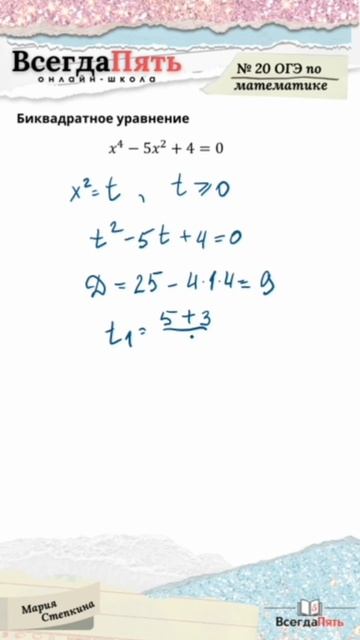 ВсегдаПять
онлайн-школа
№ 20 ОГЭ по
математике
Биквадратное уравнение
x⁴ − 5x² + 4 = 0
x² = t , t ⩾ 0
t² − 5t + 4 = 0
D = 25 − 4·1·4 = 9
t₁ = 5 + 3
Мария
Степкина
ВсегдаПять